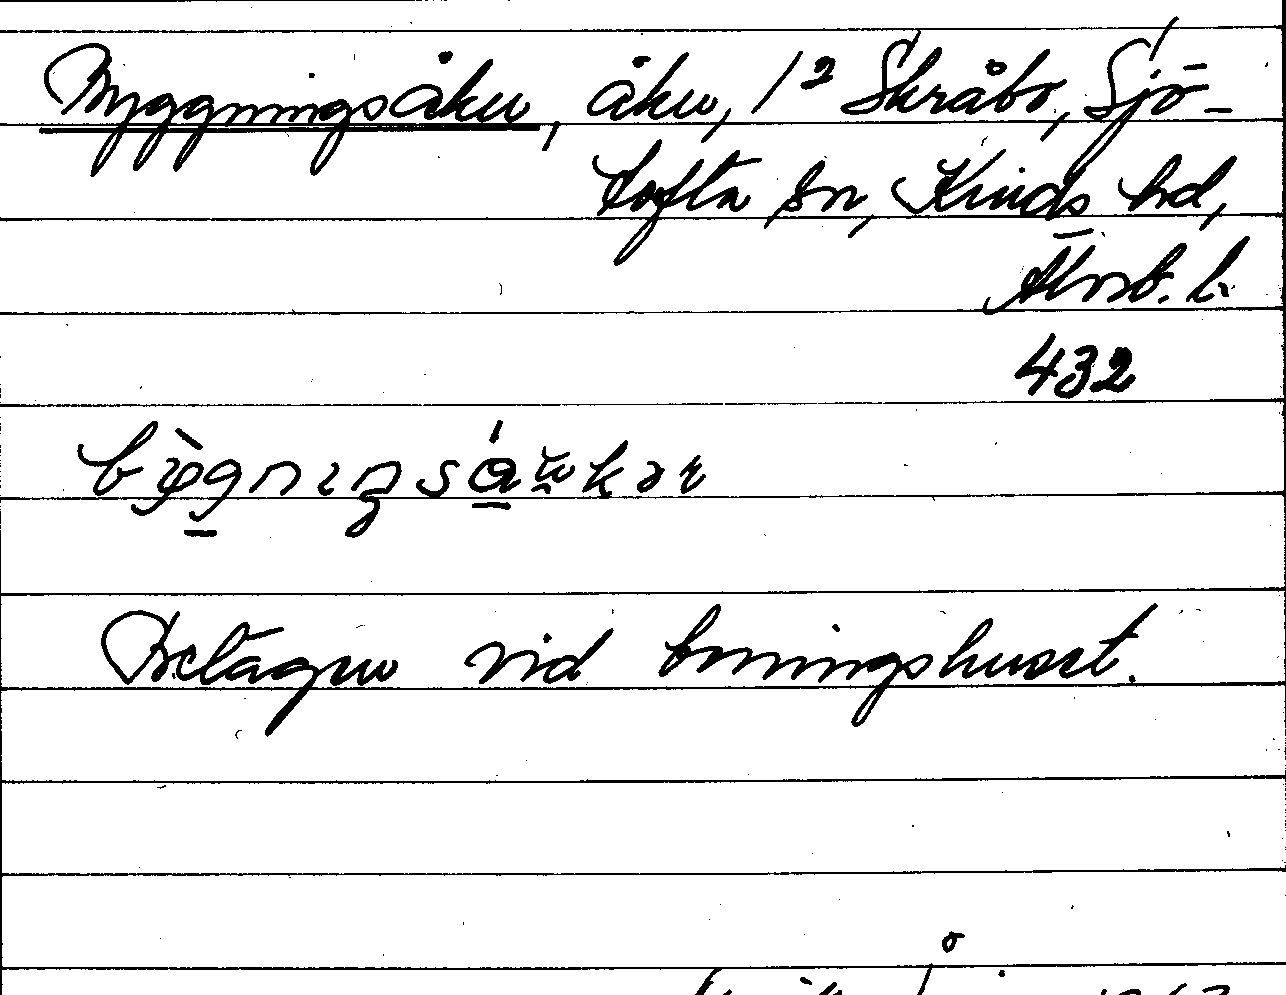 Byggningsåker, åker, 1² Skråbo, Sjö-
tofta sn, Kinds hd,
Älvsb. l.
432
Belägen vid boningshuset.